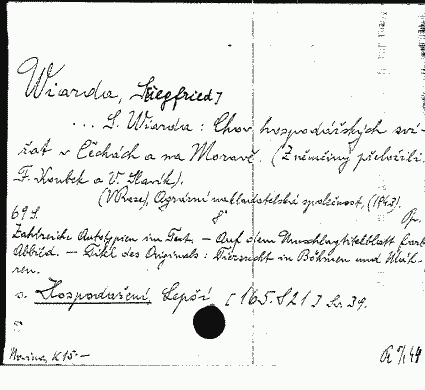 Wiarda, S[iegfried]
... S. Wiarda: Chov hospodářských zví-
řat v Čechách a na Moravě. (Z němčiny přeložili
F. Koubek a V. Slavík).
(V Praze), Agrární nakladatelská společnost, (1943).
69 S. 8° Pp.
Zahlreiche Autotypien im Text. – Auf dem Umschlagtitelblatt farb.
Abbild. – Titel des Originals: Tierzucht in Böhmen und Mäh-
ren.
s. Hospodaření, Lepší [165.821] Sv. 39.
K 15 –